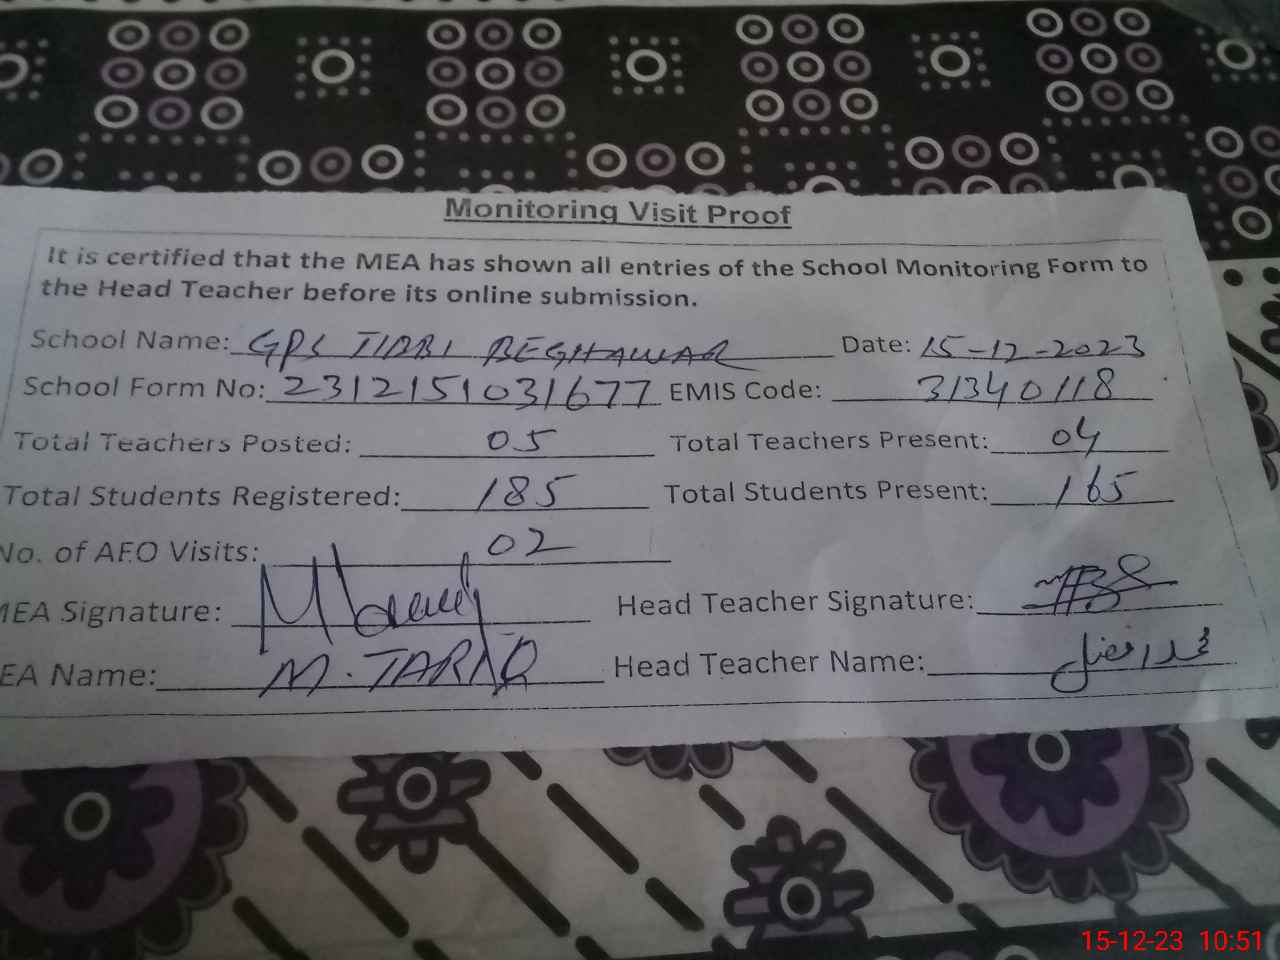 Monitoring Visit Proof
It is certified that the MEA has shown all entries of the School Monitoring Form to
the Head Teacher before its online submission.
School Name: GPS TIBBI BEGHAWAR Date: 15-12-2023
School Form No: 2312151031677 EMIS Code: 31340118
Total Teachers Posted: 05 Total Teachers Present: 04
Total Students Registered: 185 Total Students Present: 165
No. of AEO Visits: 02
MEA Signature: Head Teacher Signature:
EA Name: M. TARIQ Head Teacher Name:
15-12-23 10:51